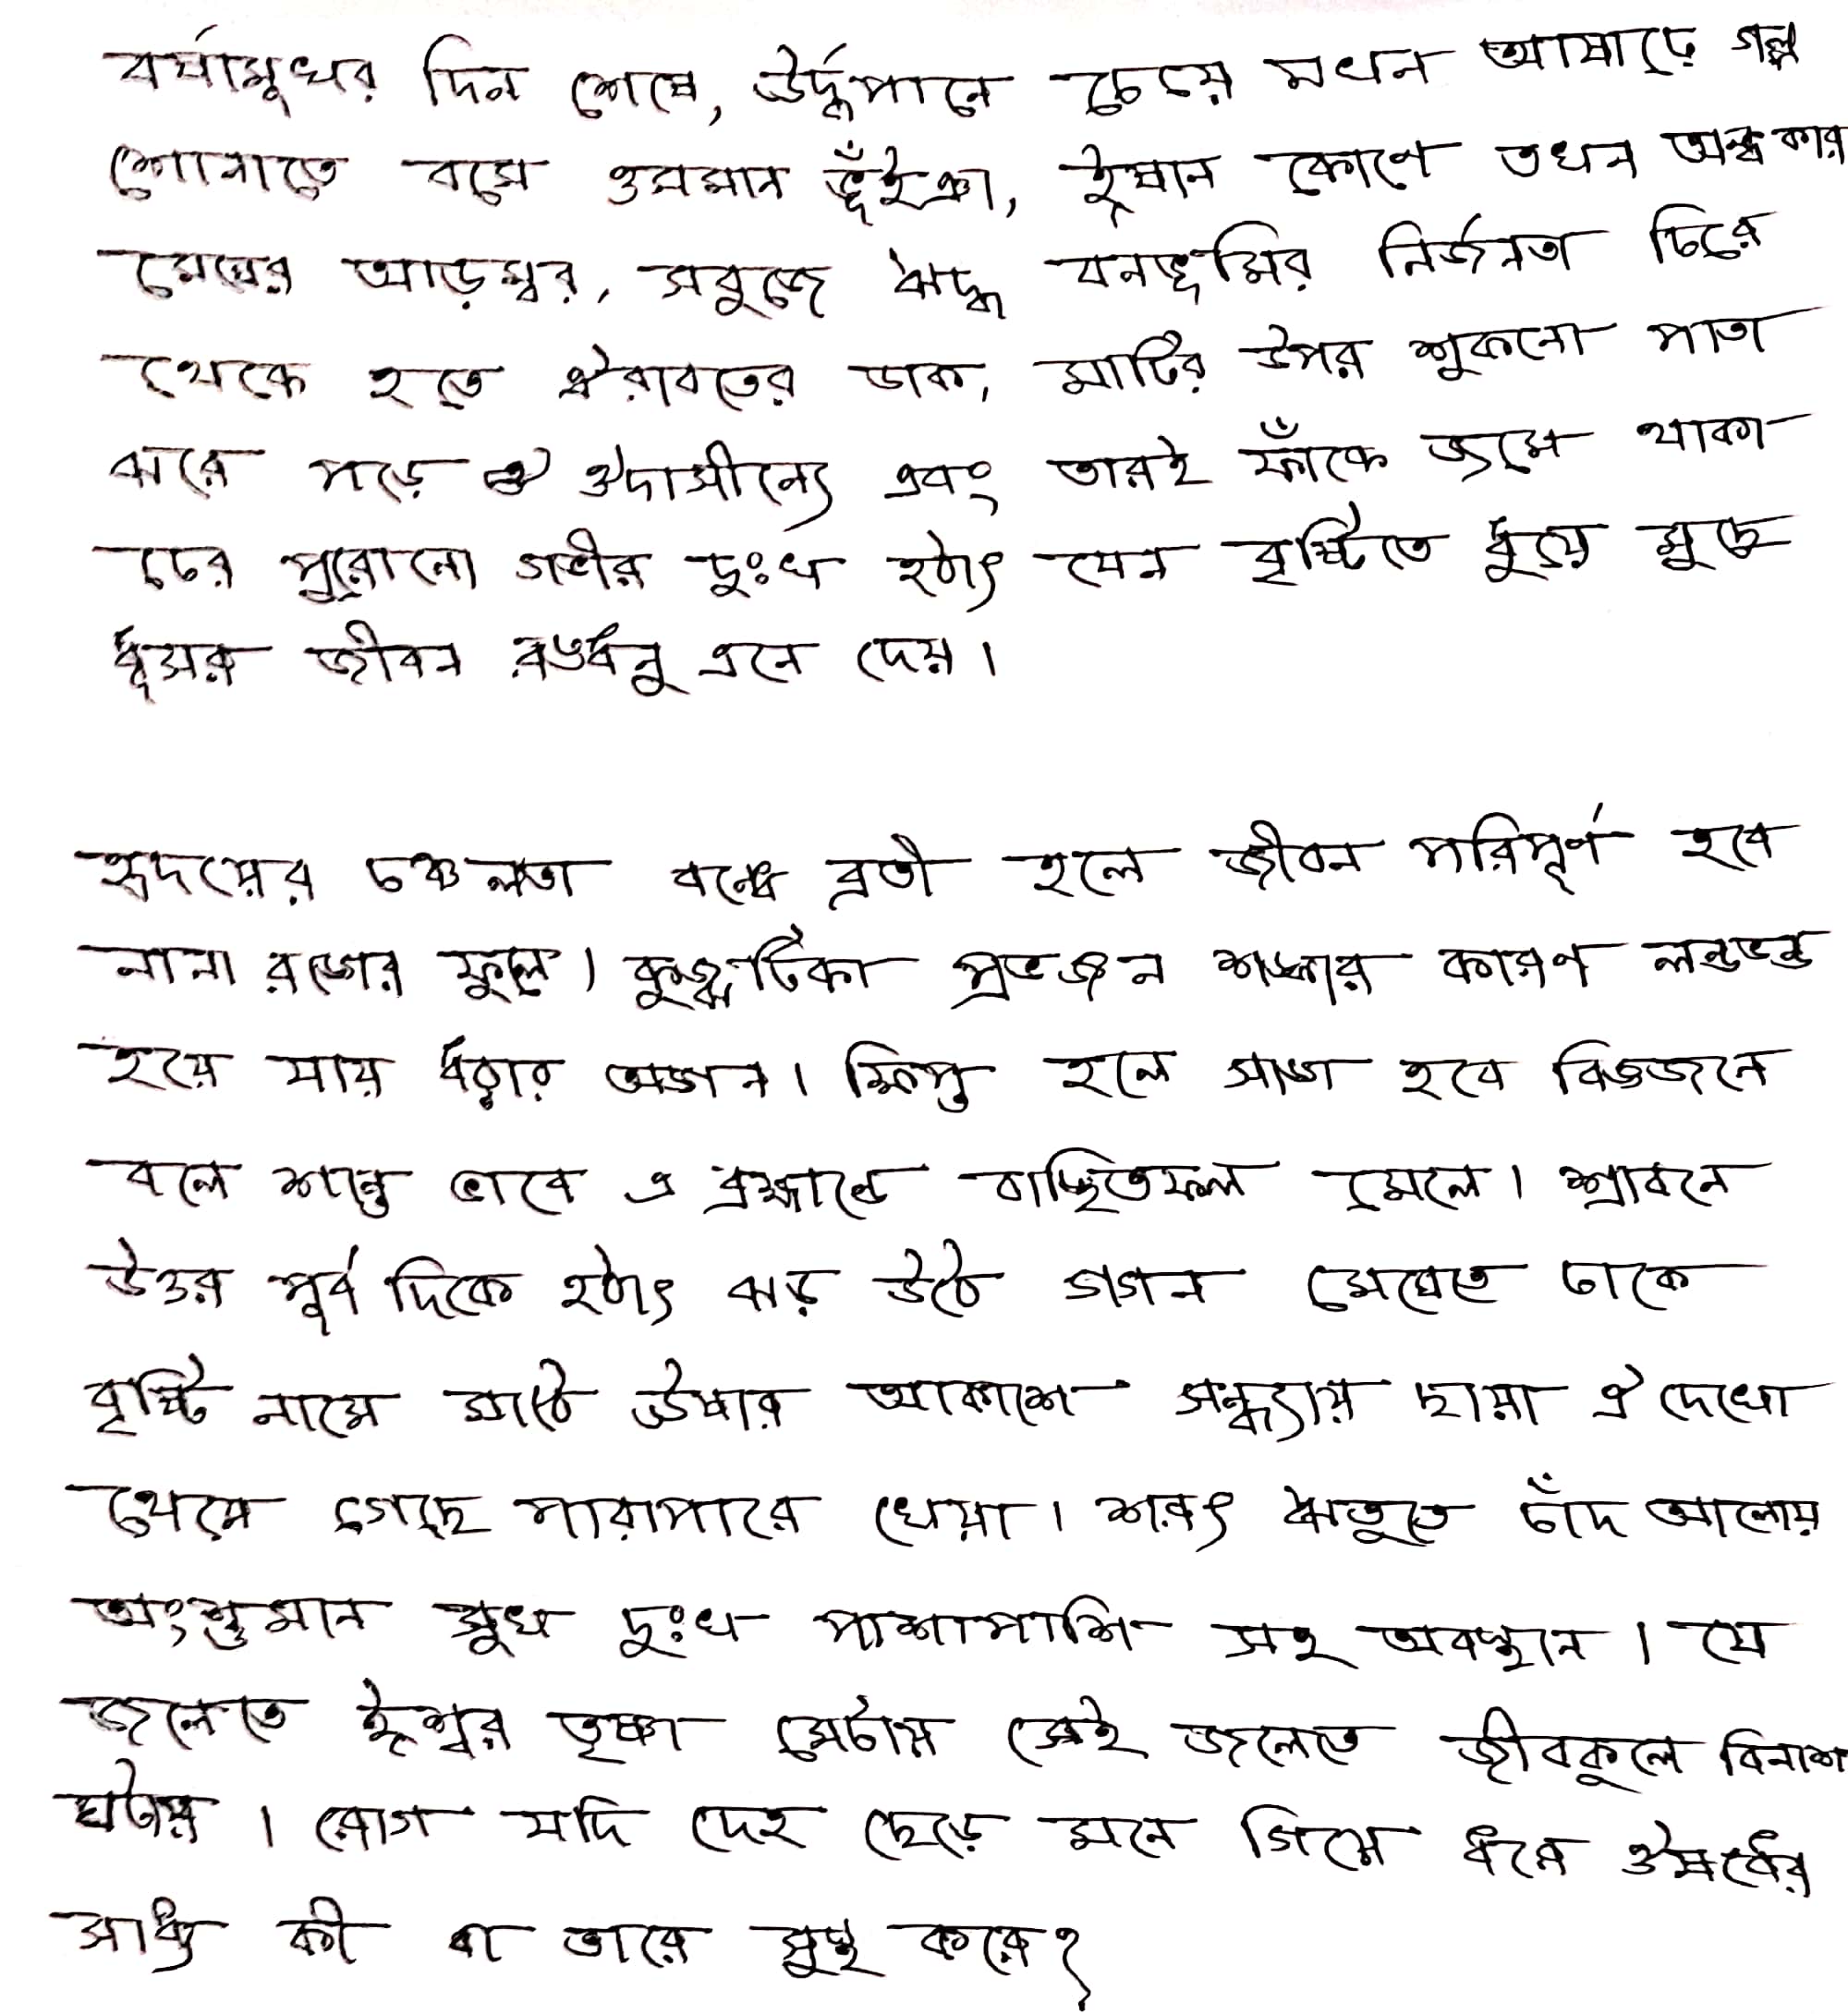 বর্ষামুখর দিন শেষে, উর্দ্ধপানে চেয়ে যখন আষাঢ়ে গল্প
শোনাতে বসে ওসমান ভূঁইঞা, ঈষান কোণে তখন অন্ধকার
মেঘের আড়ম্বর, সবুজে ঋদ্ধ বনভূমির নির্জনতা চিরে
থেকে হতে ঐরাবতের ডাক, মাটির উপর শুকনো পাতা
ঝরে পড়ে ঔদাসীন্যে এবং তারই ফাঁকে জমে থাকা
ঢের পুরোনো গভীর দুঃখ হঠাৎ যেন বৃষ্টিতে ধুয়ে মুছে
ধূসর জীবন রঙধনু এনে দেয়।
হৃদয়ের চঞ্চলতা বন্ধে ব্রতী হলে জীবন পরিপূর্ণ হবে
নানা রঙের ফুলে। কুজ্ঝটিকা প্রভঞ্জন শঙ্কার কারণ লন্ডভন্ড
হয়ে যায় ধরার অঙ্গন। ক্ষিপ্ত হলে সাঙ্গ হবে বিজ্ঞজনে
বলে শান্ত ভাবে এ ব্রহ্মান্ডে বাঞ্ছিতফল মেলে। শ্রাবনে
উত্তর পূর্ব দিকে হঠাৎ ঝড় উঠে গগন মেঘেতে ঢাকে
বৃষ্টি নামে মাঠে উষার আকাশে সন্ধ্যায় ছায়া ঐ দেখো
থেমে গেছে পারাপারে খেয়া। শরৎ ঋতুতে চাঁদ আলোয়
অংশুমান সুখ দুঃখ পাশাপাশি সহ অবস্থান। যে
জলেতে ঈশ্বর তৃষ্ণা মেটায় সেই জলেতে জীবকুলে বিনাশ
ঘটায়। রোগ যদি দেহ ছেড়ে মনে গিয়ে ধরে ঔষধের
সাধ্য কী বা তারে সুস্থ করে?